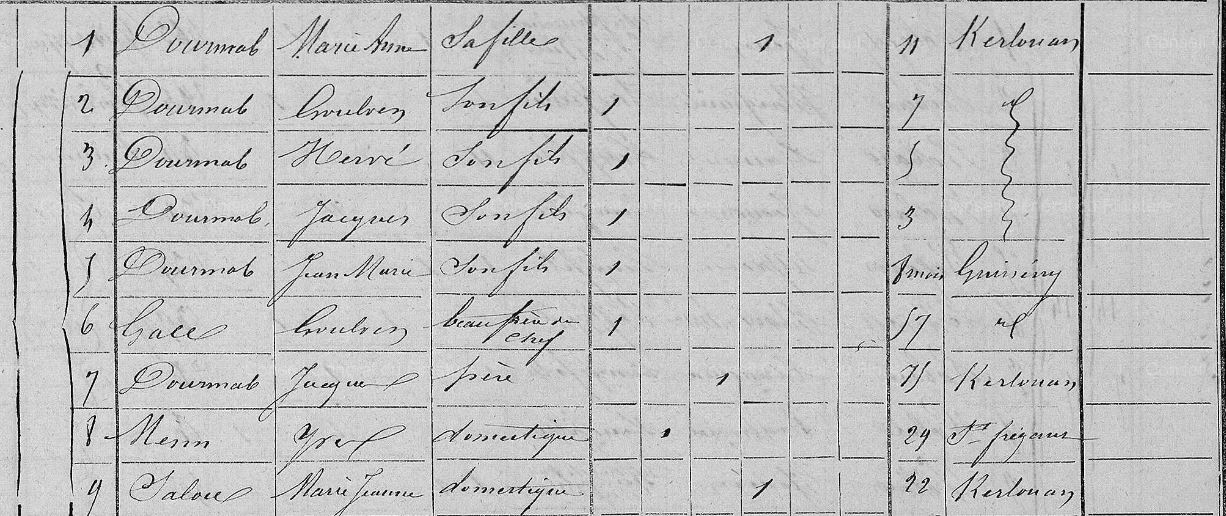 1 Dourmab Marie Anne Sa fille 1 11 Kerlouan
2 Dourmab Goulven Son fils 1 7 d
3 Dourmab Hervé Son fils 1 5
4 Dourmab Jacques Son fils 1 3
5 Dourmab Jean Marie Son fils 1 8 mois Guissény
6 Gall Goulven beau frère du chef 1 57 d
7 Dourmab Jacques frère 1 75 Kerlouan
8 Menn Yves domestique 1 29 St frégant
9 Salou Marie Jeanne domestique 1 22 Kerlouan